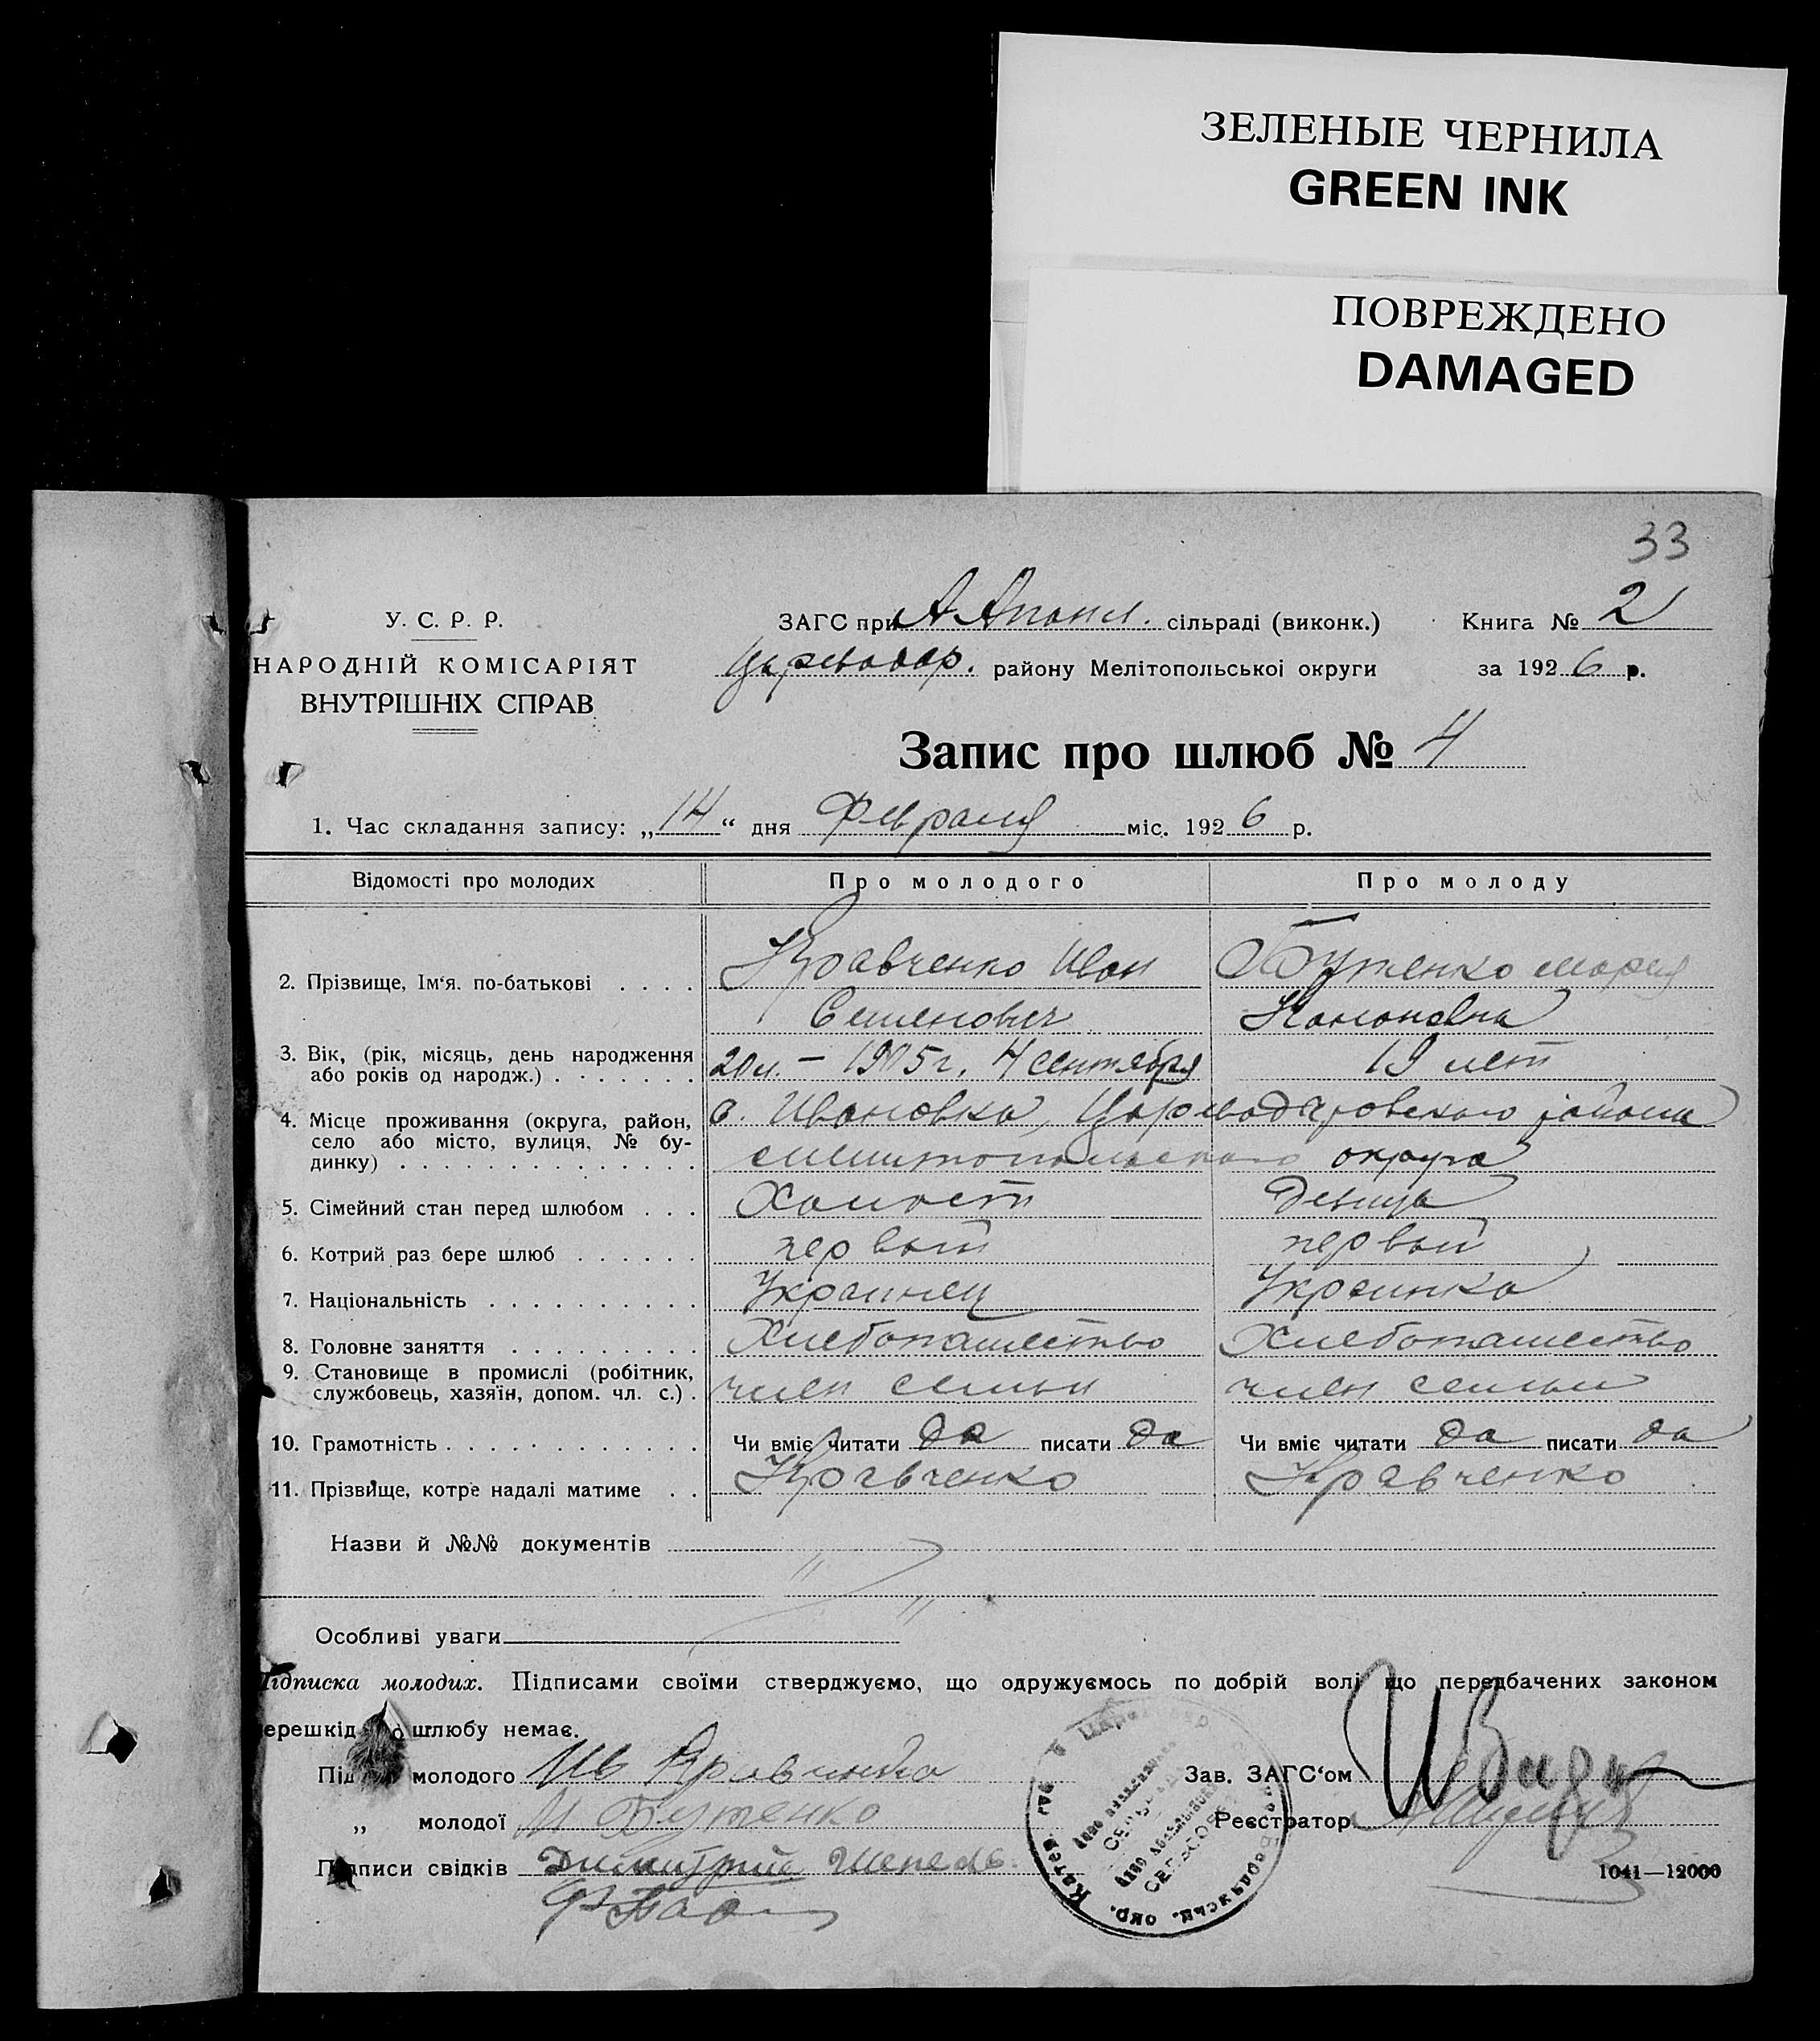 ЗЕЛЕНЫЕ ЧЕРНИЛА
GREEN INK
ПОВРЕЖДЕНО
DAMAGED
33
У. С. Р. Р.
НАРОДНІЙ КОМІСАРІЯТ
ВНУТРІШНІХ СПРАВ
ЗАГС при А Апанл. сільраді (виконк.) Книга № 2
Цареводар. району Мелітопольської округи за 1926 р.
Запис про шлюб № 4
1. Час складання запису: „14“ дня Февраля міс. 1926 р.
Відомості про молодих Про молодого Про молоду
2. Прізвище, Ім‘я. по-батькові Кравченко Иван Семенович Бутенко Мария Кононовна
3. Вік, (рік, місяць, день народження або років од народж.) 20 л. — 1905 г. 4 сентября 19 лет
4. Місце проживання (округа, район, село або місто, вулиця, № будинку) с. Ивановка, Цареводаровского района
Мелитопольского округа
5. Сімейний стан перед шлюбом Холост Девица
6. Котрий раз бере шлюб первый первый
7. Національність Украинец Украинка
8. Головне заняття Хлебопашество Хлебопашество
9. Становище в промислі (робітник, службовець, хазяїн, допом. чл. с.) член семьи член семьи
10. Грамотність Чи вміє читати да писати да Чи вміє читати да писати да
11. Прізвище, котре надалі матиме Кравченко Кравченко
Назви й №№ документів
Особливі уваги
Підписка молодих. Підписами своїми стверджуємо, що одружуємось по добрій волі що передбачених законом
перешкід шлюбу немає.
молодого Ив Кравченко Зав. ЗАГС‘ом
„ молодої М Бутенко Реєстратор
Підписи свідків Димитрий Шепель
1041—12000